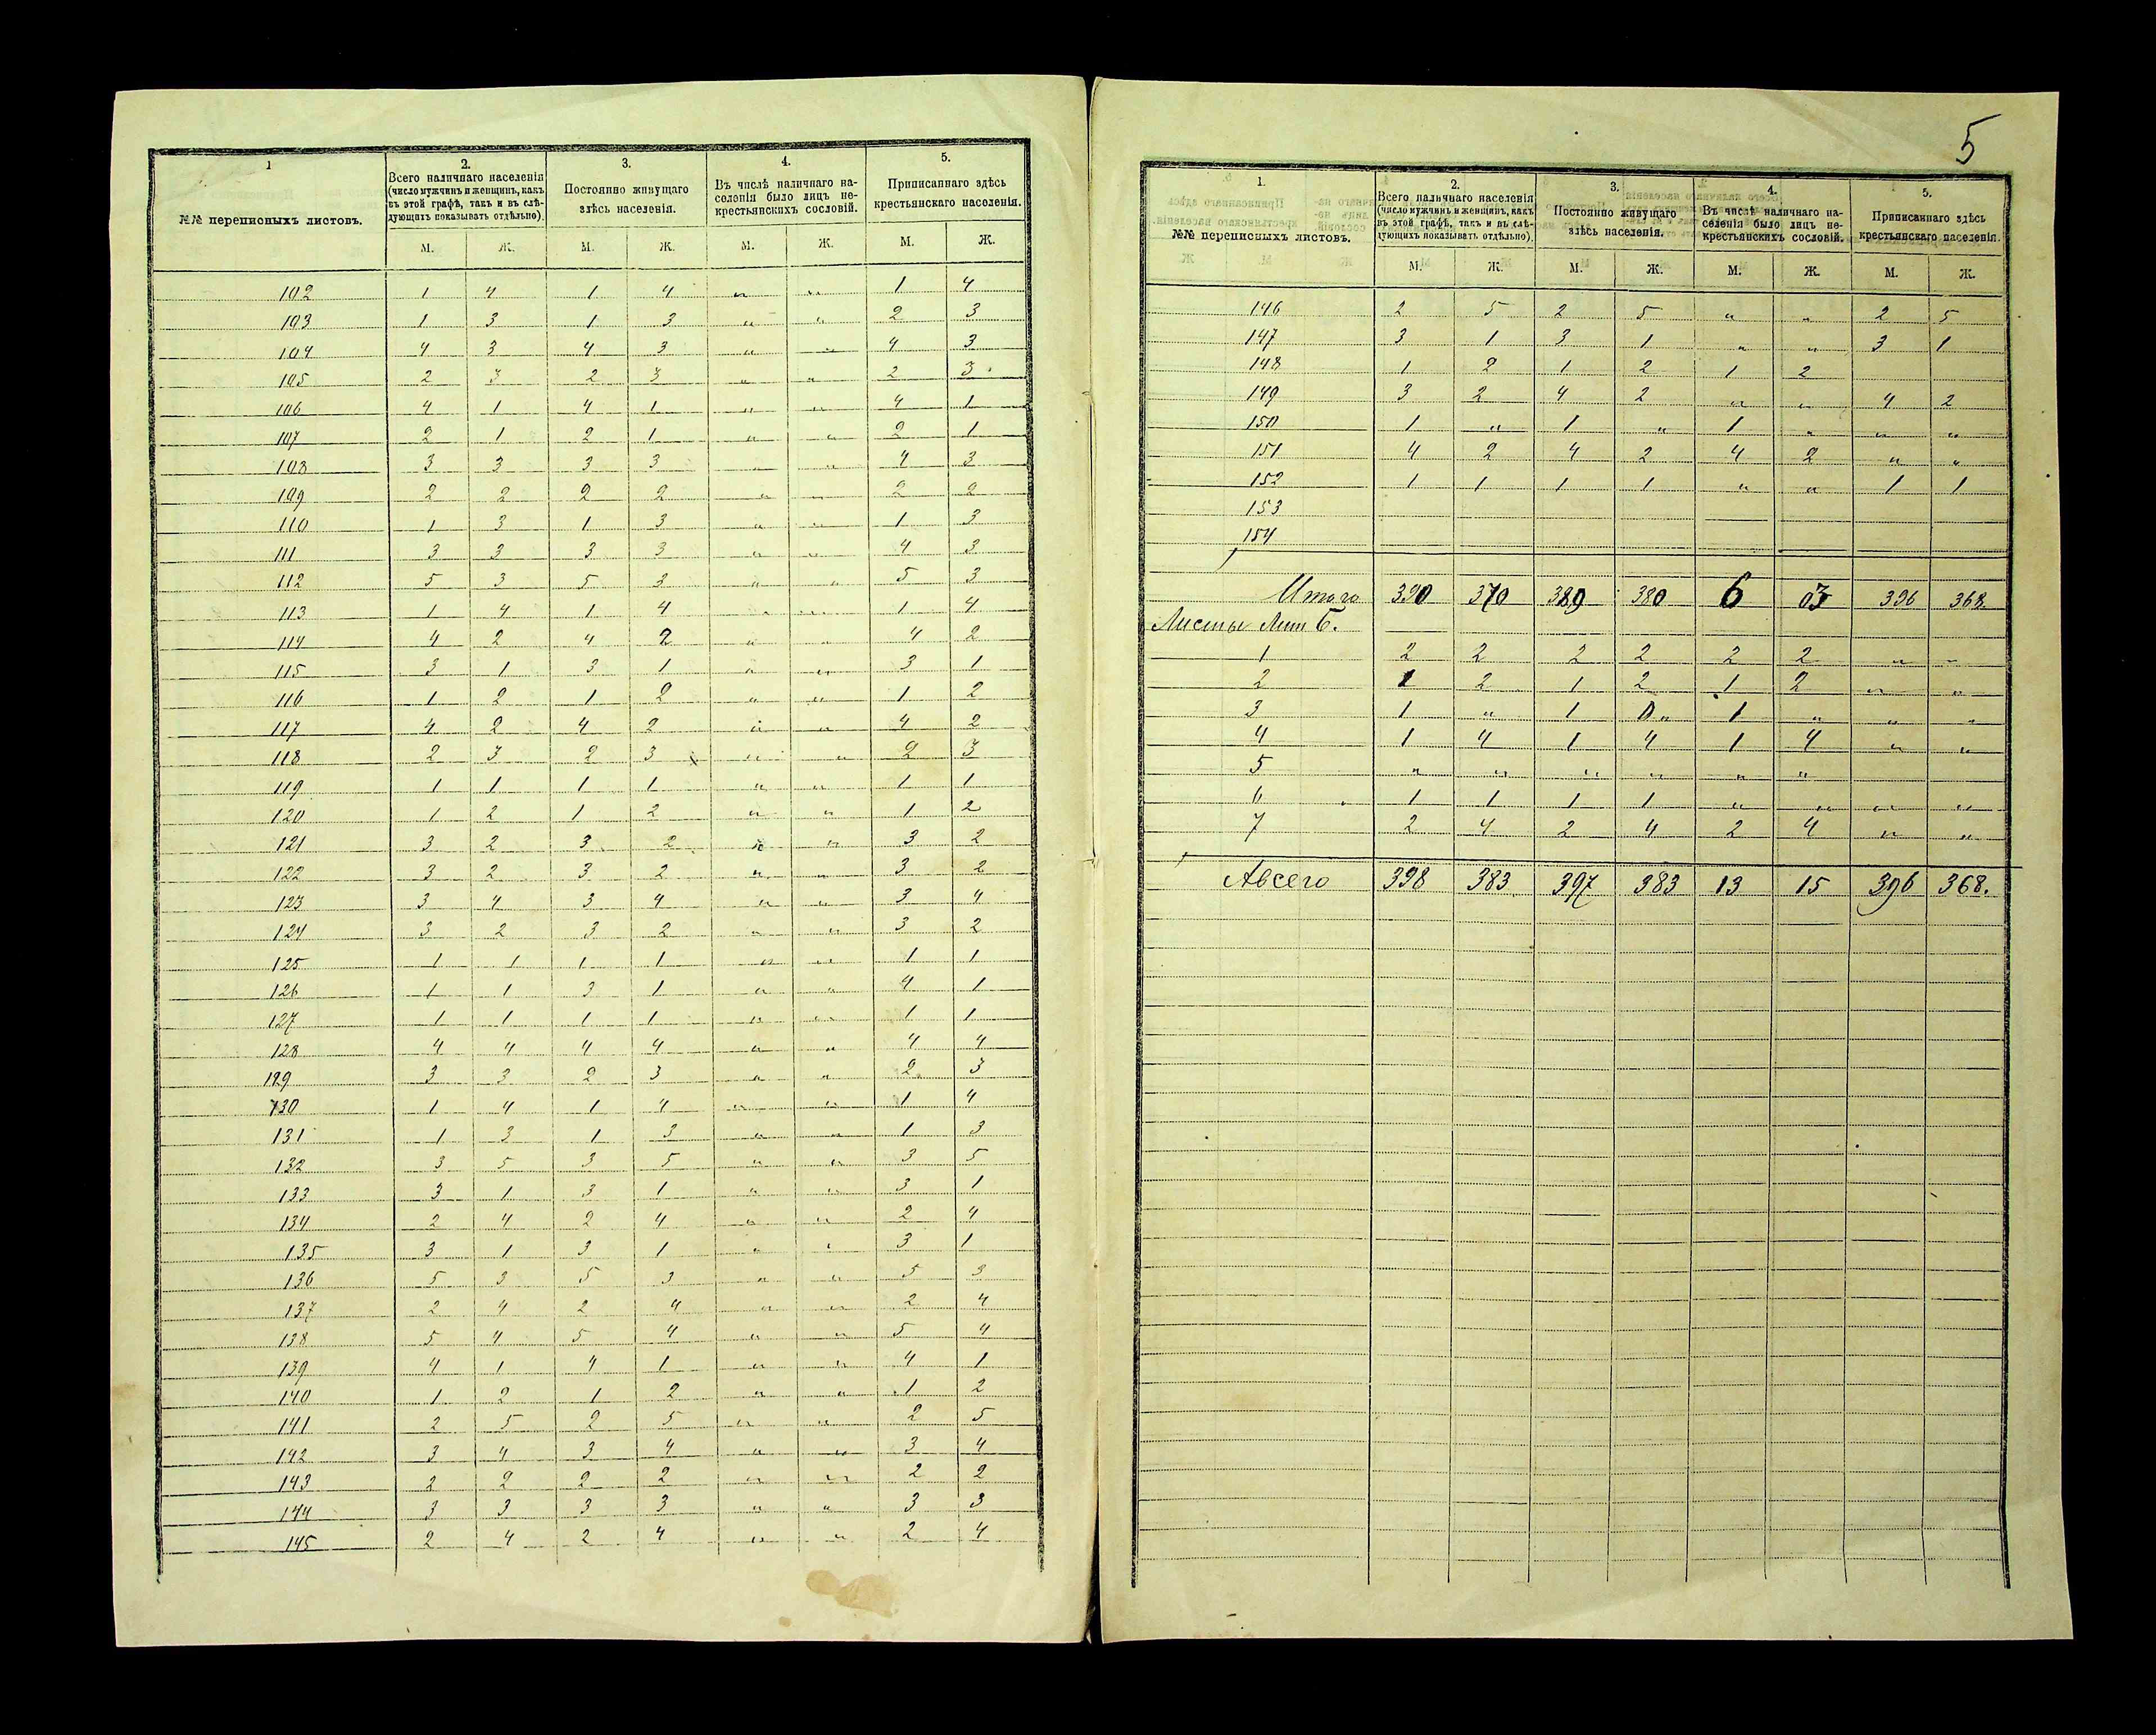 1
2.
3.
4.
5.
№№ переписныхъ листовъ.
Всего наличнаго населенія (число мужчинъ и женщинъ, какъ въ этой графѣ, такъ и въ слѣдующихъ показывать отдѣльно).
Постоянно живущаго здѣсь населенія.
Въ числѣ наличнаго населенія было лицъ некрестьянскихъ сословій.
Приписаннаго здѣсь крестьянскаго населенія.
М. Ж. М. Ж. М. Ж. М. Ж.
102 1 4 1 4 „ „ 1 4
103 1 3 1 3 „ „ 2 3
104 4 3 4 3 „ „ 4 3
105 2 3 2 3 „ „ 2 3
106 4 1 4 1 „ „ 4 1
107 2 1 2 1 „ „ 2 1
108 3 3 3 3 „ „ 4 3
109 2 2 2 2 „ „ 2 2
110 1 3 1 3 „ „ 1 3
111 3 3 3 3 „ „ 4 3
112 5 3 5 3 „ „ 5 3
113 1 4 1 4 „ „ 1 4
114 4 2 4 2 „ „ 4 2
115 3 1 3 1 „ „ 3 1
116 1 2 1 2 „ „ 1 2
117 4 2 4 2 „ „ 4 2
118 2 3 2 3 „ „ 2 3
119 1 1 1 1 „ „ 1 1
120 1 2 1 2 „ „ 1 2
121 3 2 3 2 „ „ 3 2
122 3 2 3 2 „ „ 3 2
123 3 4 3 4 „ „ 3 4
124 3 2 3 2 „ „ 3 2
125 1 1 1 1 „ „ 1 1
126 1 1 3 1 „ „ 4 1
127 1 1 1 1 „ „ 1 1
128 4 4 4 4 „ „ 4 4
129 3 3 2 3 „ „ 2 3
130 1 4 1 4 „ „ 1 4
131 1 3 1 3 „ „ 1 3
132 3 5 3 5 „ „ 3 5
133 3 1 3 1 „ „ 3 1
134 2 4 2 4 „ „ 2 4
135 3 1 3 1 „ „ 3 1
136 5 3 5 3 „ „ 5 3
137 2 4 2 4 „ „ 2 4
138 5 4 5 4 „ „ 5 4
139 4 1 4 1 „ „ 4 1
140 1 2 1 2 „ „ 1 2
141 2 5 2 5 „ „ 2 5
142 3 4 3 4 „ „ 3 4
143 2 2 2 2 „ „ 2 2
144 3 3 3 3 „ „ 3 3
145 2 4 2 4 „ „ 2 4
5
1.
2.
3.
4.
5.
№№ переписныхъ листовъ.
Всего наличнаго населенія (число мужчинъ и женщинъ, какъ въ этой графѣ, такъ и въ слѣдующихъ показывать отдѣльно).
Постоянно живущаго здѣсь населенія.
Въ числѣ наличнаго населенія было лицъ некрестьянскихъ сословій.
Приписаннаго здѣсь крестьянскаго населенія.
М. Ж. М. Ж. М. Ж. М. Ж.
146 2 5 2 5 „ „ 2 5
147 3 1 3 1 „ „ 3 1
148 1 2 1 2 1 2
149 3 2 4 2 „ „ 4 2
150 1 „ 1 „ 1 „ „ „
151 4 2 4 2 4 2 „ „
152 1 1 1 1 „ „ 1 1
153
154
Итого 390 370 389 380 6 03 396 368
Листы Лит Б.
1 2 2 2 2 2 2 „ „
2 1 2 1 2 1 2 „ „
3 1 „ 1 0„ 1 „ „ „
4 1 4 1 4 1 4 „ „
5 „ „ „ „ „ „
6 1 1 1 1 „ „ „ „
7 2 4 2 4 2 4 „ „
Авсего 398 383 397 383 13 15 396 368.